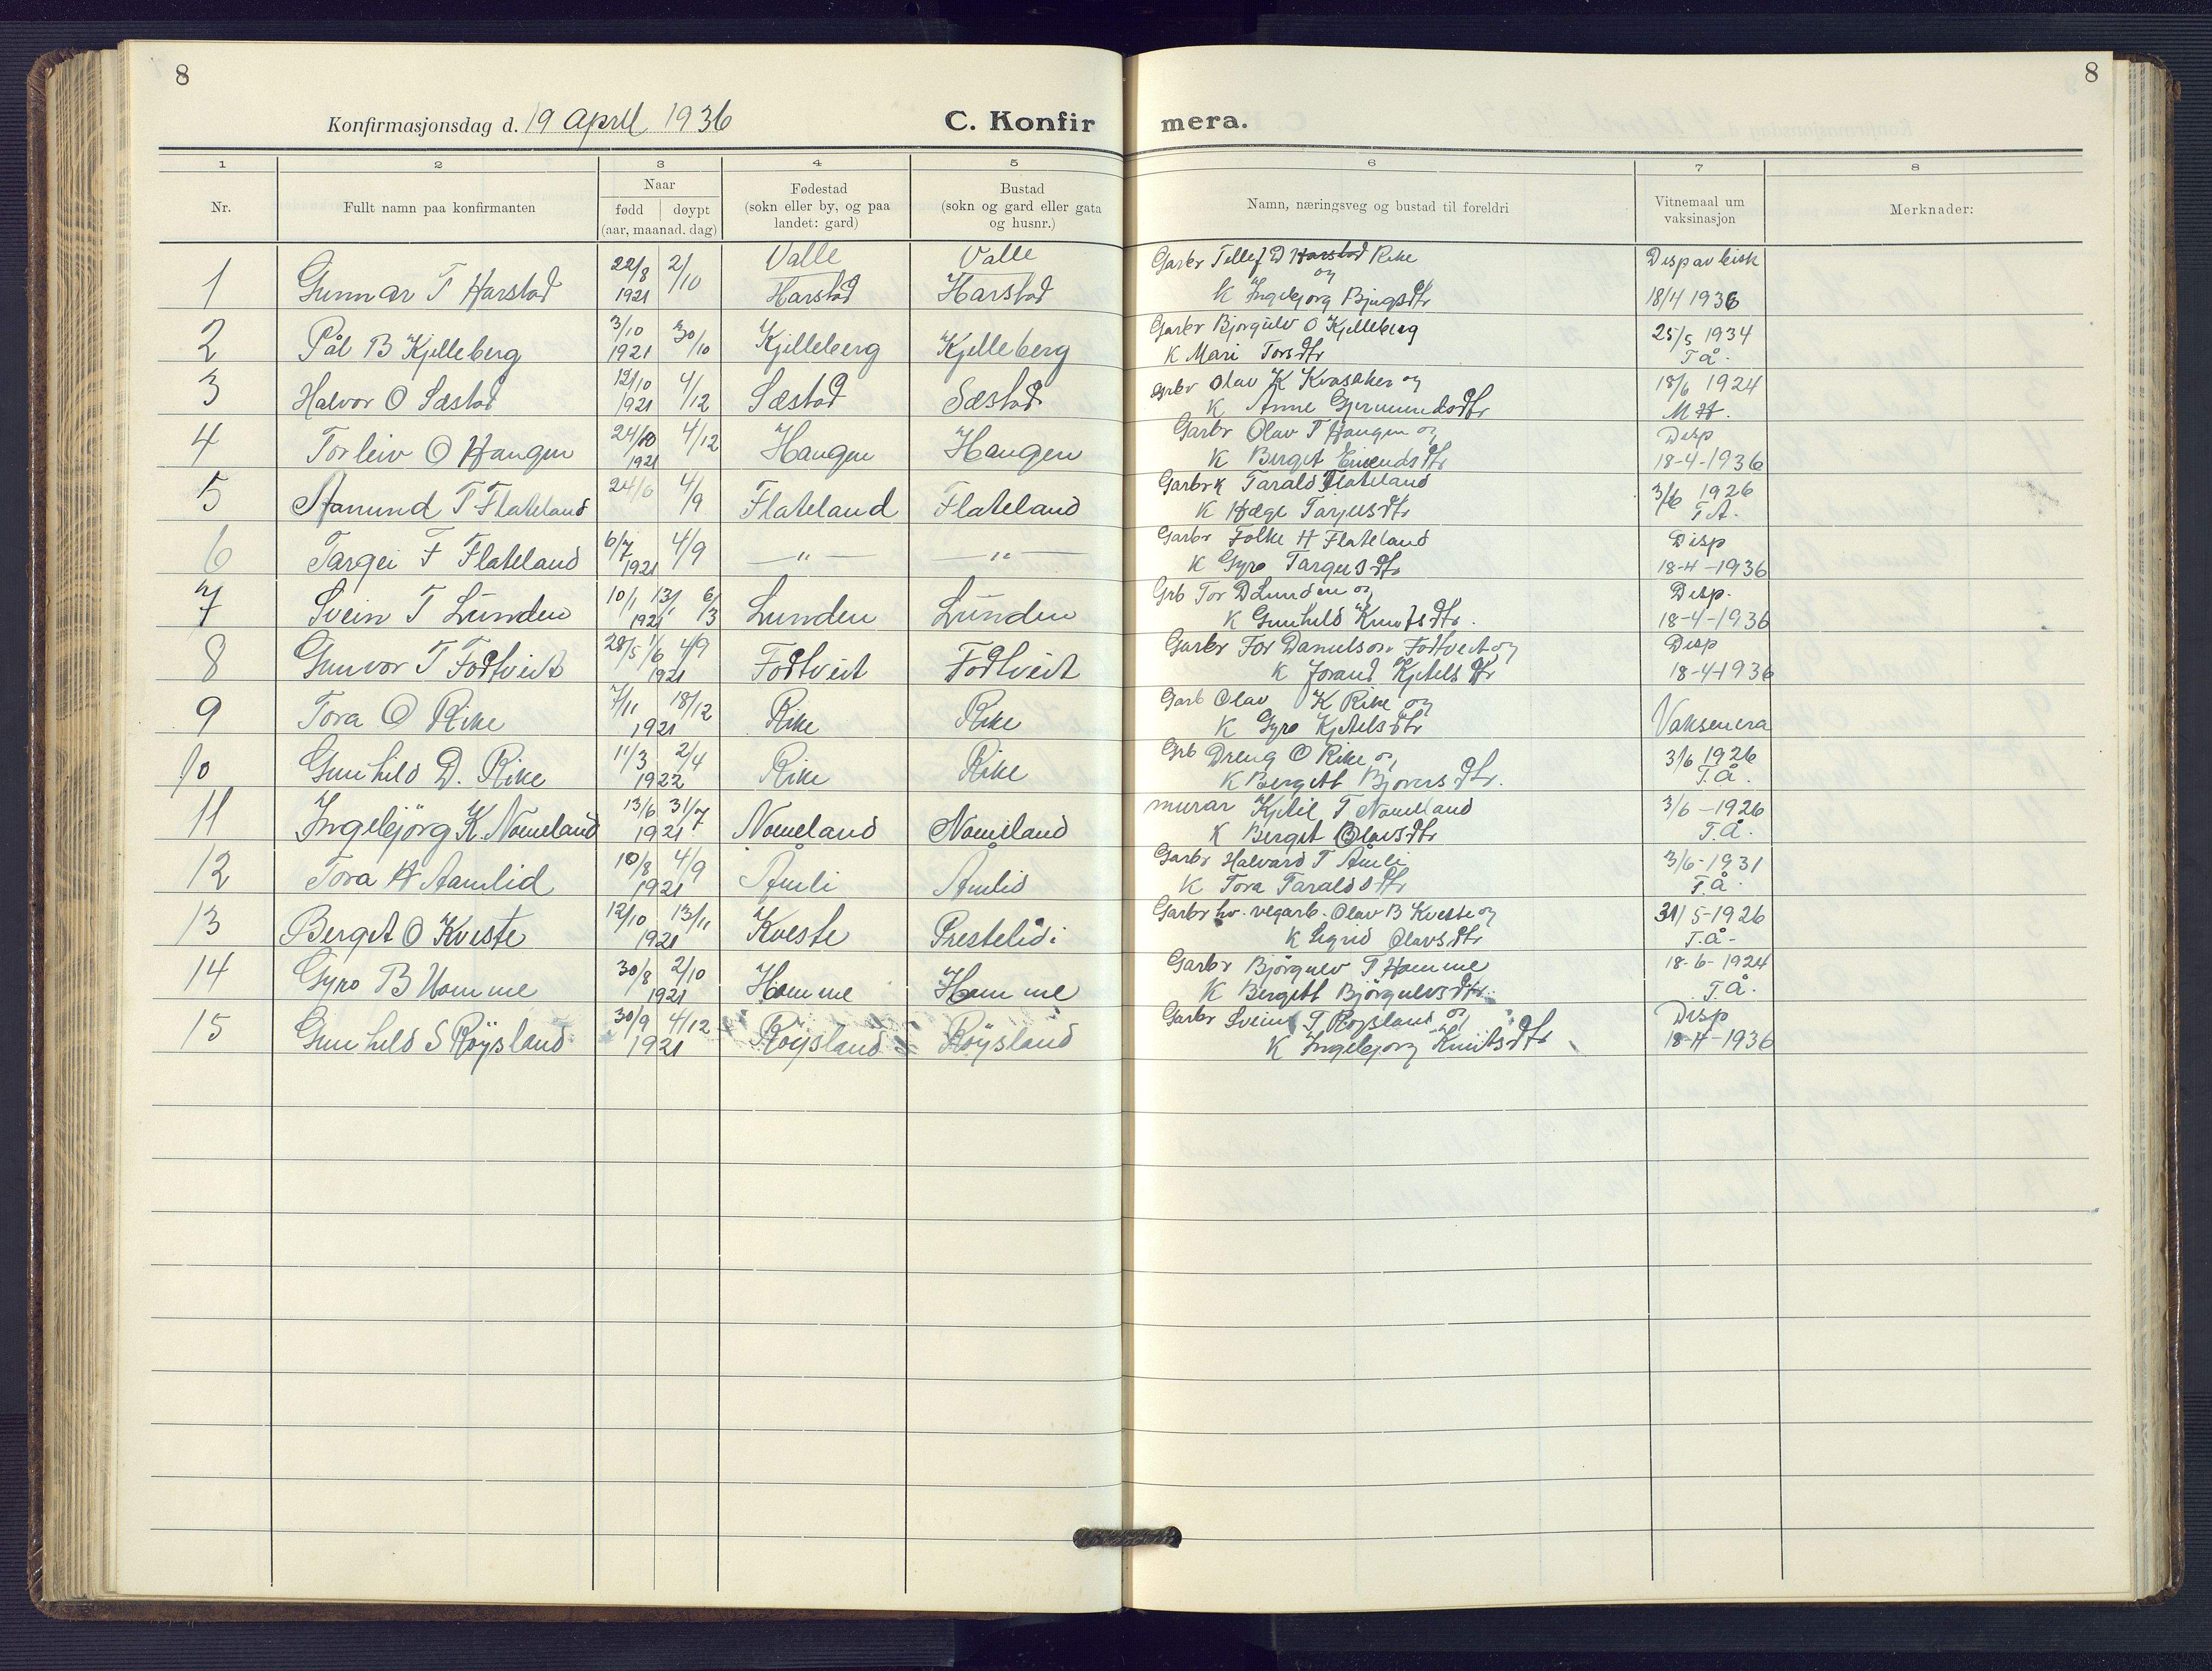 8
8
Konfirmasjonsdag d. 19 april 1936
C. Konfir mera.
1 2 3 4 5 6 7 8
Nr.
Fullt namn paa konfirmanten
Naar
født | døypt
(aar, maanad. dag)
Fødestad
(sokn eller by, og paa
landet: gard)
Bustad
(sokn og gard eller gata
og husnr.)
Namn, næringsveg og bustad til foreldri
Vitnemaal um
vaksinasjon
Merknader:
1 Gunnar T Harstad 22/8 1921 2/10 Valle Harstad Valle Harstad Garbr Tellef D Harstad Rike og K Ingebjorg Disp av bisk 18/4 1936
2 Pål B Kjelleberg 3/10 1921 30/10 Kjelleberg Kjelleberg Garbr Bjorgulv O Kjelleberg K Mari Torsdtr 25/5 1934 T Å.
3 Halvor O Sæstad 12/10 1921 4/12 Sæstad Sæstad Grbr Olav K Kvasaker og K Anne Gjermundsdtr 18/6 1924 M H.
4 Torleiv O Haugen 24/10 1921 4/12 Haugen Haugen Garbr Olav T Haugen og K Berget Eivendsdtr Disp 18-4-1936
5 Aamund T Flateland 24/6 4/9 Flateland Flateland Garbr K Tarald Flateland K Hæge Tarjeisdtr 3/6 1926 T.A.
6 Targei F Flateland 6/7 1921 4/9 — " — — " — Garbr Folke H Flateland K Gyro Targeisdtr Disp 18-4-1936
7 Svein T Lunden 10/1 13/1 1921 6/3 Lunden Lunden Grb Tor D Lunden og K Gunhild Knutsdtr. Disp. 18-4-1936
8 Gunvor T Fodtveit 28/5 1/6 1921 4/9 Fodtveit Fodtveit Garbr Tor Danielson Fodtveit og K Jorand Kjetilsdtr Disp 18-4-1936
9 Tora O Rike 7/11 1921 18/12 Rike Rike Garb Olav K Rike og K Gyro Kjetelsdtr Vaksenera
10 Gunhild D. Rike 11/3 1922 2/4 Rike Rike Grb Dreng O Rike og K Bergitt Bjorversdtr. 3/6 1926 T.Å.
11 Ingebjörg K. Nomeland 13/6 1921 31/7 Nomeland Nomeland murar Kjetil T Nomeland K Berget Olavsdtr 3/6-1926 T.Å.
12 Tora H Aamlid 10/8 1921 4/9 Åmli Åmlid Garbr Halvard T Åmli K Tora Taraldsdtr 3/6-1931 T.Å.
13 Berget O Kveste 12/10 1921 13/11 Kveste Prestelidi Garbr hv. vegarb. Olav B Kveste og K Sigrid Olavsdtr 31/5-1926 T.Å.
14 Gyro B Homme 30/8 1921 2/10 Homme Homme Garbr Björgulv T Homme K Bergitt Björgulvsdtr. 18-6-1924 T.Å.
15 Gunhild S Röysland 30/9 1921 4/12 Röysland Röysland Garbr Svein T Roysland og K Ingebjorg Knutsdtr Disp 18-4-1936